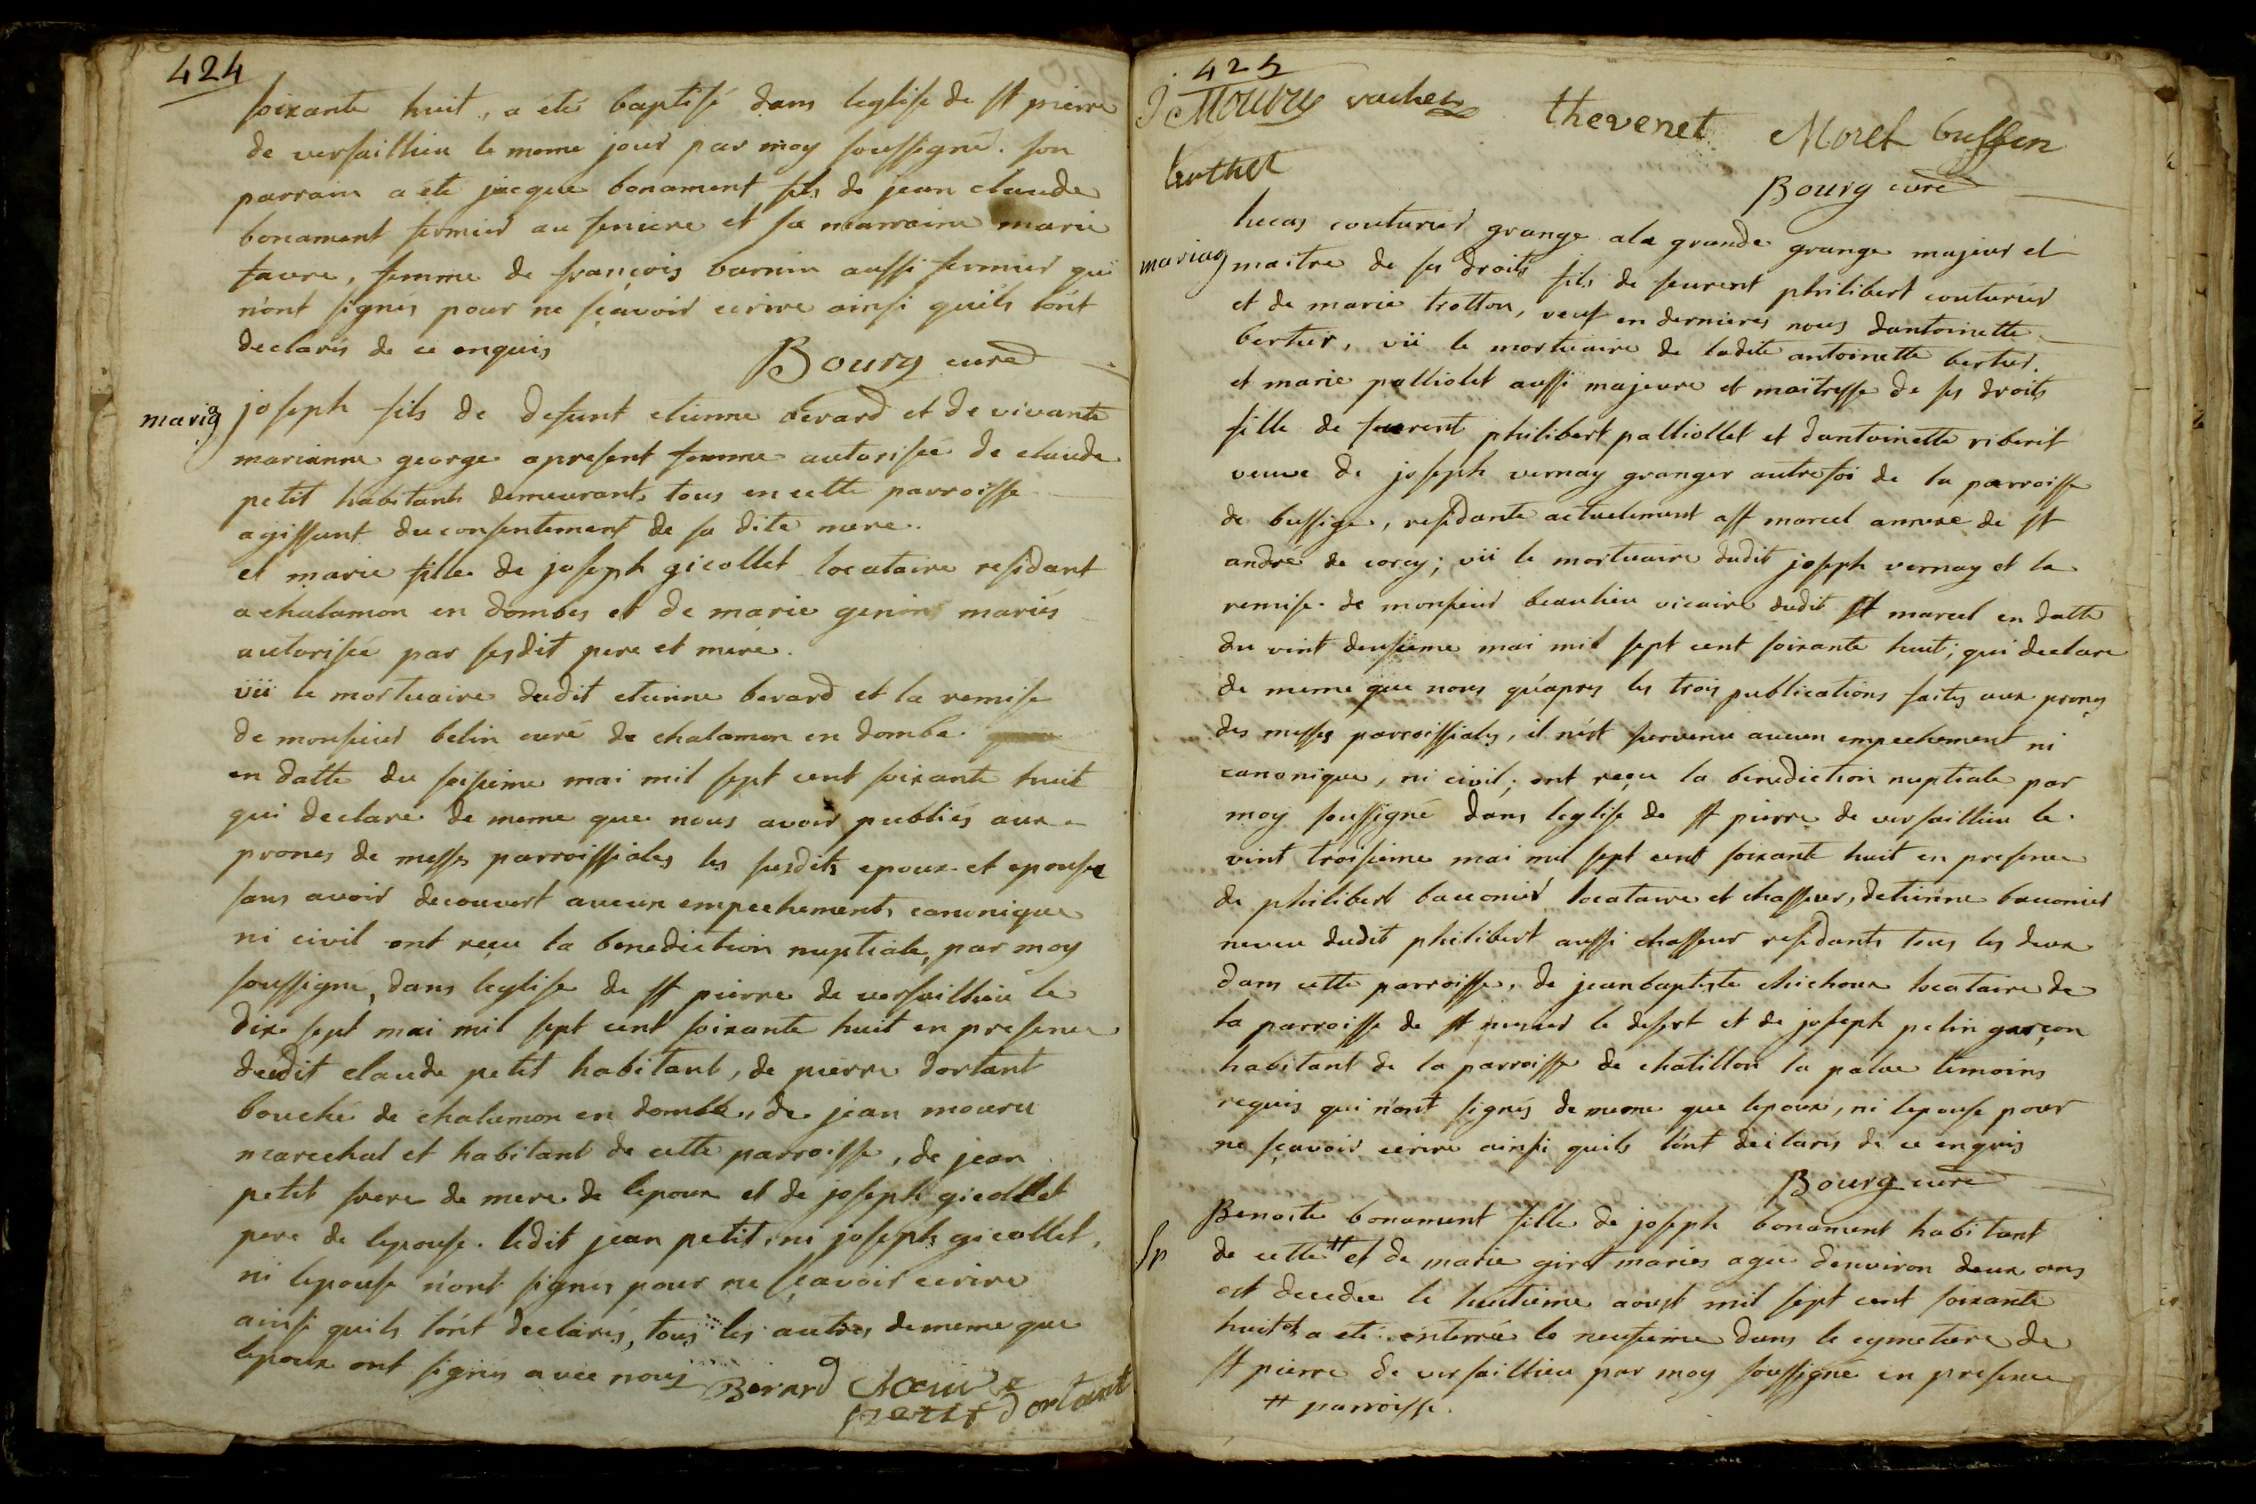 424
soixante huit, a eté baptisé dans leglise de st pierre
de versaillieu le meme jour par moy soussigné. son
parrain a eté jacque bonament fils de jean claude
bonament fermier au feniere et sa marraine marie
favre, femme de françois varnin aussi fermier qui
n'ont signés pour ne sçavoir ecrire ainsi quils l'ont
declarés de ce enquis
Bourg curé
mariag
joseph fils de defunt etienne berard et de vivante
marianne george apresent femme autorisée de claude
petit habitants demeurants tous en cette parroisse
agissant du consentement de sa dite mere.
et marie fille de joseph gicollet locataire residant
a chalamon en dombes et de marie genin mariés
autorisée par sesdit pere et mere.
vû le mortuaire dudit etienne berard et la remise
de monsieur belin curé de chalamon en dombe
en datte du seisieme mai mil sept cent soixante huit
qui declare de meme que nous avoir publiés aux
prones de messes parroissiales les susdits epoux et epouse
sans avoir decouvert aucun empechements canonique
ni civil ont reçu la benediction nuptiale, par moy
soussigné, dans leglise de st pierre de versaillieu le
dix sept mai mil sept cent soixante huit en presence
dudit claude petit habitant, de pierre dortant
bouché de chalamon en dombe, de jean mouru
marechal et habitant de cette parroisse, de jean
petit frere de mere de lepoux et de joseph gicollet
pere de lepouse. ledit jean petit, ni joseph gicollet,
ni lepouse n'ont signés pour ne sçavoir ecrire
ainsi quils l'ont declarés, tous les autres de meme que
lepoux ont signés avec nous Berard
petit dortant
425
vacher thevenet Morel buffen
berthet
Bourg curé
mariag
lucas couturier grange ala grande grange majeur et
maitre de ses droits fils de feurent philibert couturier
et de marie trotton, veuf en dernieres noces dantoinette
bertier, vû le mortuaire de ladite antoinette bertier.
et marie palliolet aussi majeure et maitresse de ses droits
fille de feurent philibert palliollet et dantoinette riberit
veuve de joseph vernay granger autrefoi de la parroisse
de bussige, residante actuelement a st marcel annexe de st
andré de corcy; vû le mortuaire dudit joseph vernay et la
remise de monsieur beaulieu vicaire dudit st marcel en datte
du vint deusieme mai mil sept cent soixante huit; qui declare
de meme que nous qu'apres les trois publications faites aux prones
des messes parroissiales, il n'est survenu aucun empechement ni
canonique, ni civil; ont reçu la benediction nuptiale par
moy soussigné dans leglise de st pierre de versaillieu le
vint troisieme mai mil sept cent soixante huit en presence
de philibert bacconier locataire et chasseur, detienne bacconier
neveu dudit philibert aussi chasseur residants tous les deux
dans cette parroisse, de jean baptiste chichoux locataire de
la parroisse de st le desert et de joseph pelin garçon
habitant de la parroisse de chatillon la palue temoins
requis qui n'ont signés de meme que lepoux, ni lepouse pour
ne sçavoir ecrire ainsi quils l'ont declarés de ce enquis
Bourg curé
Sp
Benoite bonament fille de joseph bonament habitant
de cette # et de marie giret mariés agee denviron deux ans
est decedée le huitieme aoust mil sept cent soixante
huit et a eté enterrée le neufieme dans le cymetiere de
st pierre de versaillieu par moy soussigné en presence
# parroisse.